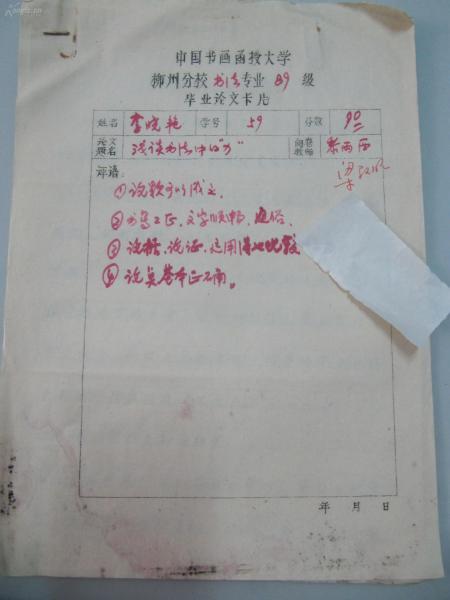 中国书画函授大学
柳州分校书法专业89级
毕业论文卡片
姓名 李晓艳 学号 59 分数 90
论文题名 浅谈书法中的"力" 阅卷教师
评语:
①论题可以成立
②书写工正、文字顺畅、通俗、
③论据、论证、运用 比较
④论点基本正确。
年 月 日